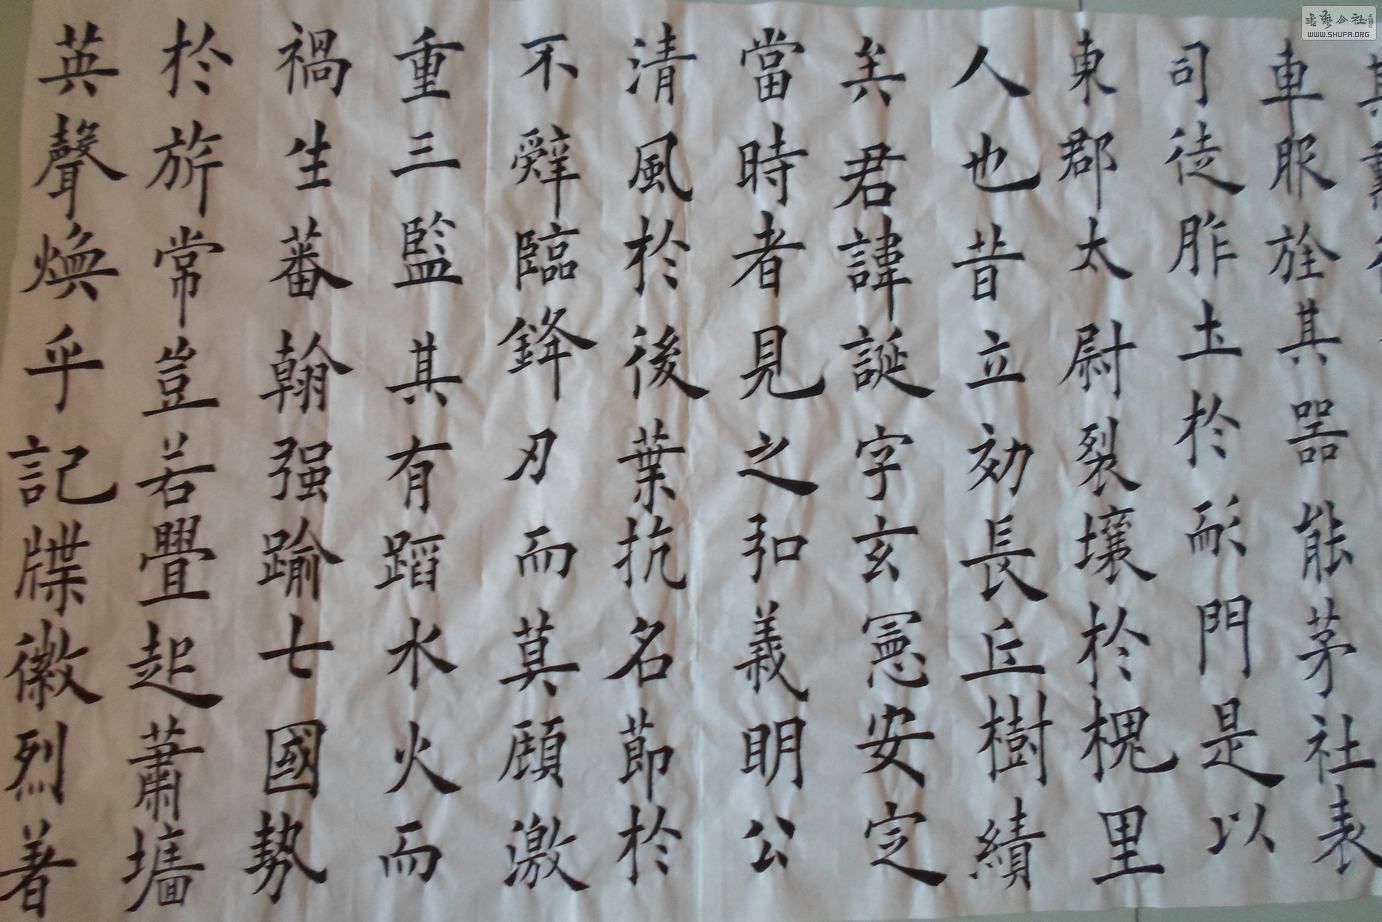 英聲煥乎記牒徽烈著
於旂常豈若疊起蕭墻
禍生蕃翰强踰七國勢
重三監其有蹈水火而
不辭臨鋒刃而莫顧激
清風於後葉抗名節於
當時者見之弘義明公
矣君諱誕字玄憲安定
人也昔立効長丘樹績
東郡太尉裂壤於槐里
司徒胙土於耏門是以
車服旌其器能茅社表
其
書藝公社
WWW.SHUFA.ORG